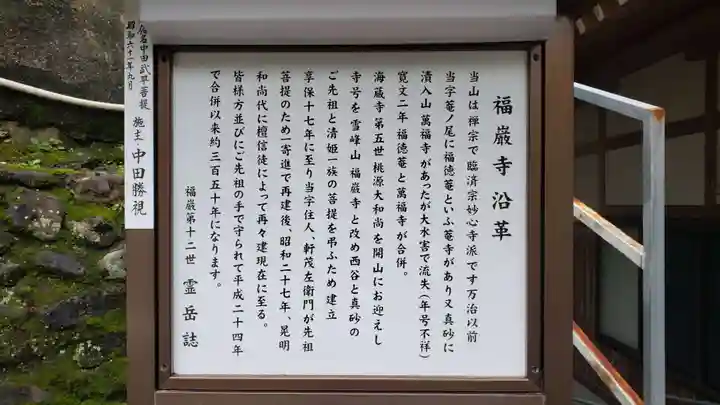 福巌寺沿革
当山は禅宗で臨済宗妙心寺派です万治以前
当字菴ノ尾に福徳菴といふ菴寺があり又真砂に
漬入山萬福寺があったが大水害で流失(年号不祥)
寛文二年 福徳菴と萬福寺が合併。
海蔵寺第五世 桃源大和尚を開山にお迎えし
寺号を雪峰山 福巌寺と改め西谷と真砂の
ご先祖と清姫一族の菩提を弔ふため建立
享保十七年に至り当字住人、軒茂左衛門が先祖
菩提のため一寄進で再建後、昭和二十七年、晃明
和尚代に檀信徒によって再々建現在に至る。
皆様方並びにご先祖の手で守られて平成二十四年
で合併以来約三百五十年になります。
福巌第十二世 霊岳誌
為名中田武平菩提 施主・中田勝視
昭和六十一年九月